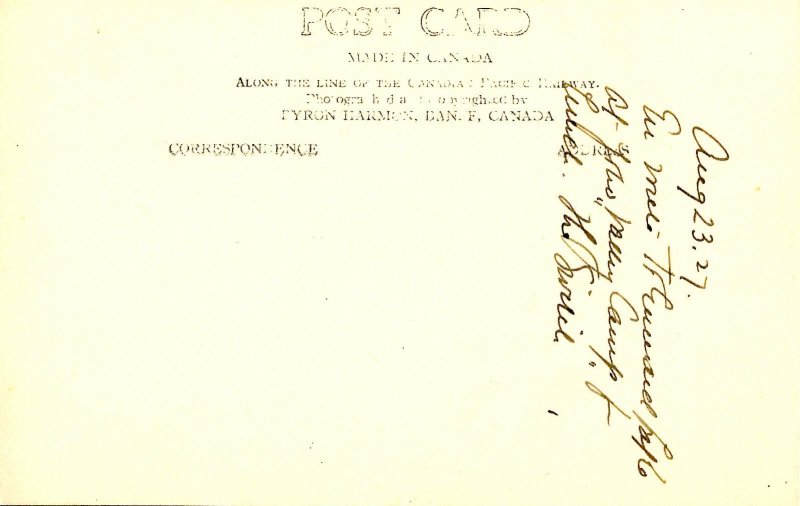 POST CARD
MADE IN CANADA
ALONG THE LINE OF THE CANADIAN PACIFIC RAILWAY.
Photographed and copyrighted by
BYRON HARMON, BANFF, CANADA
CORRESPONDENCE
ADDRESS
Aug 23.27.
En route to Emerald
at Yoho Valley Camp for
Lunch. The